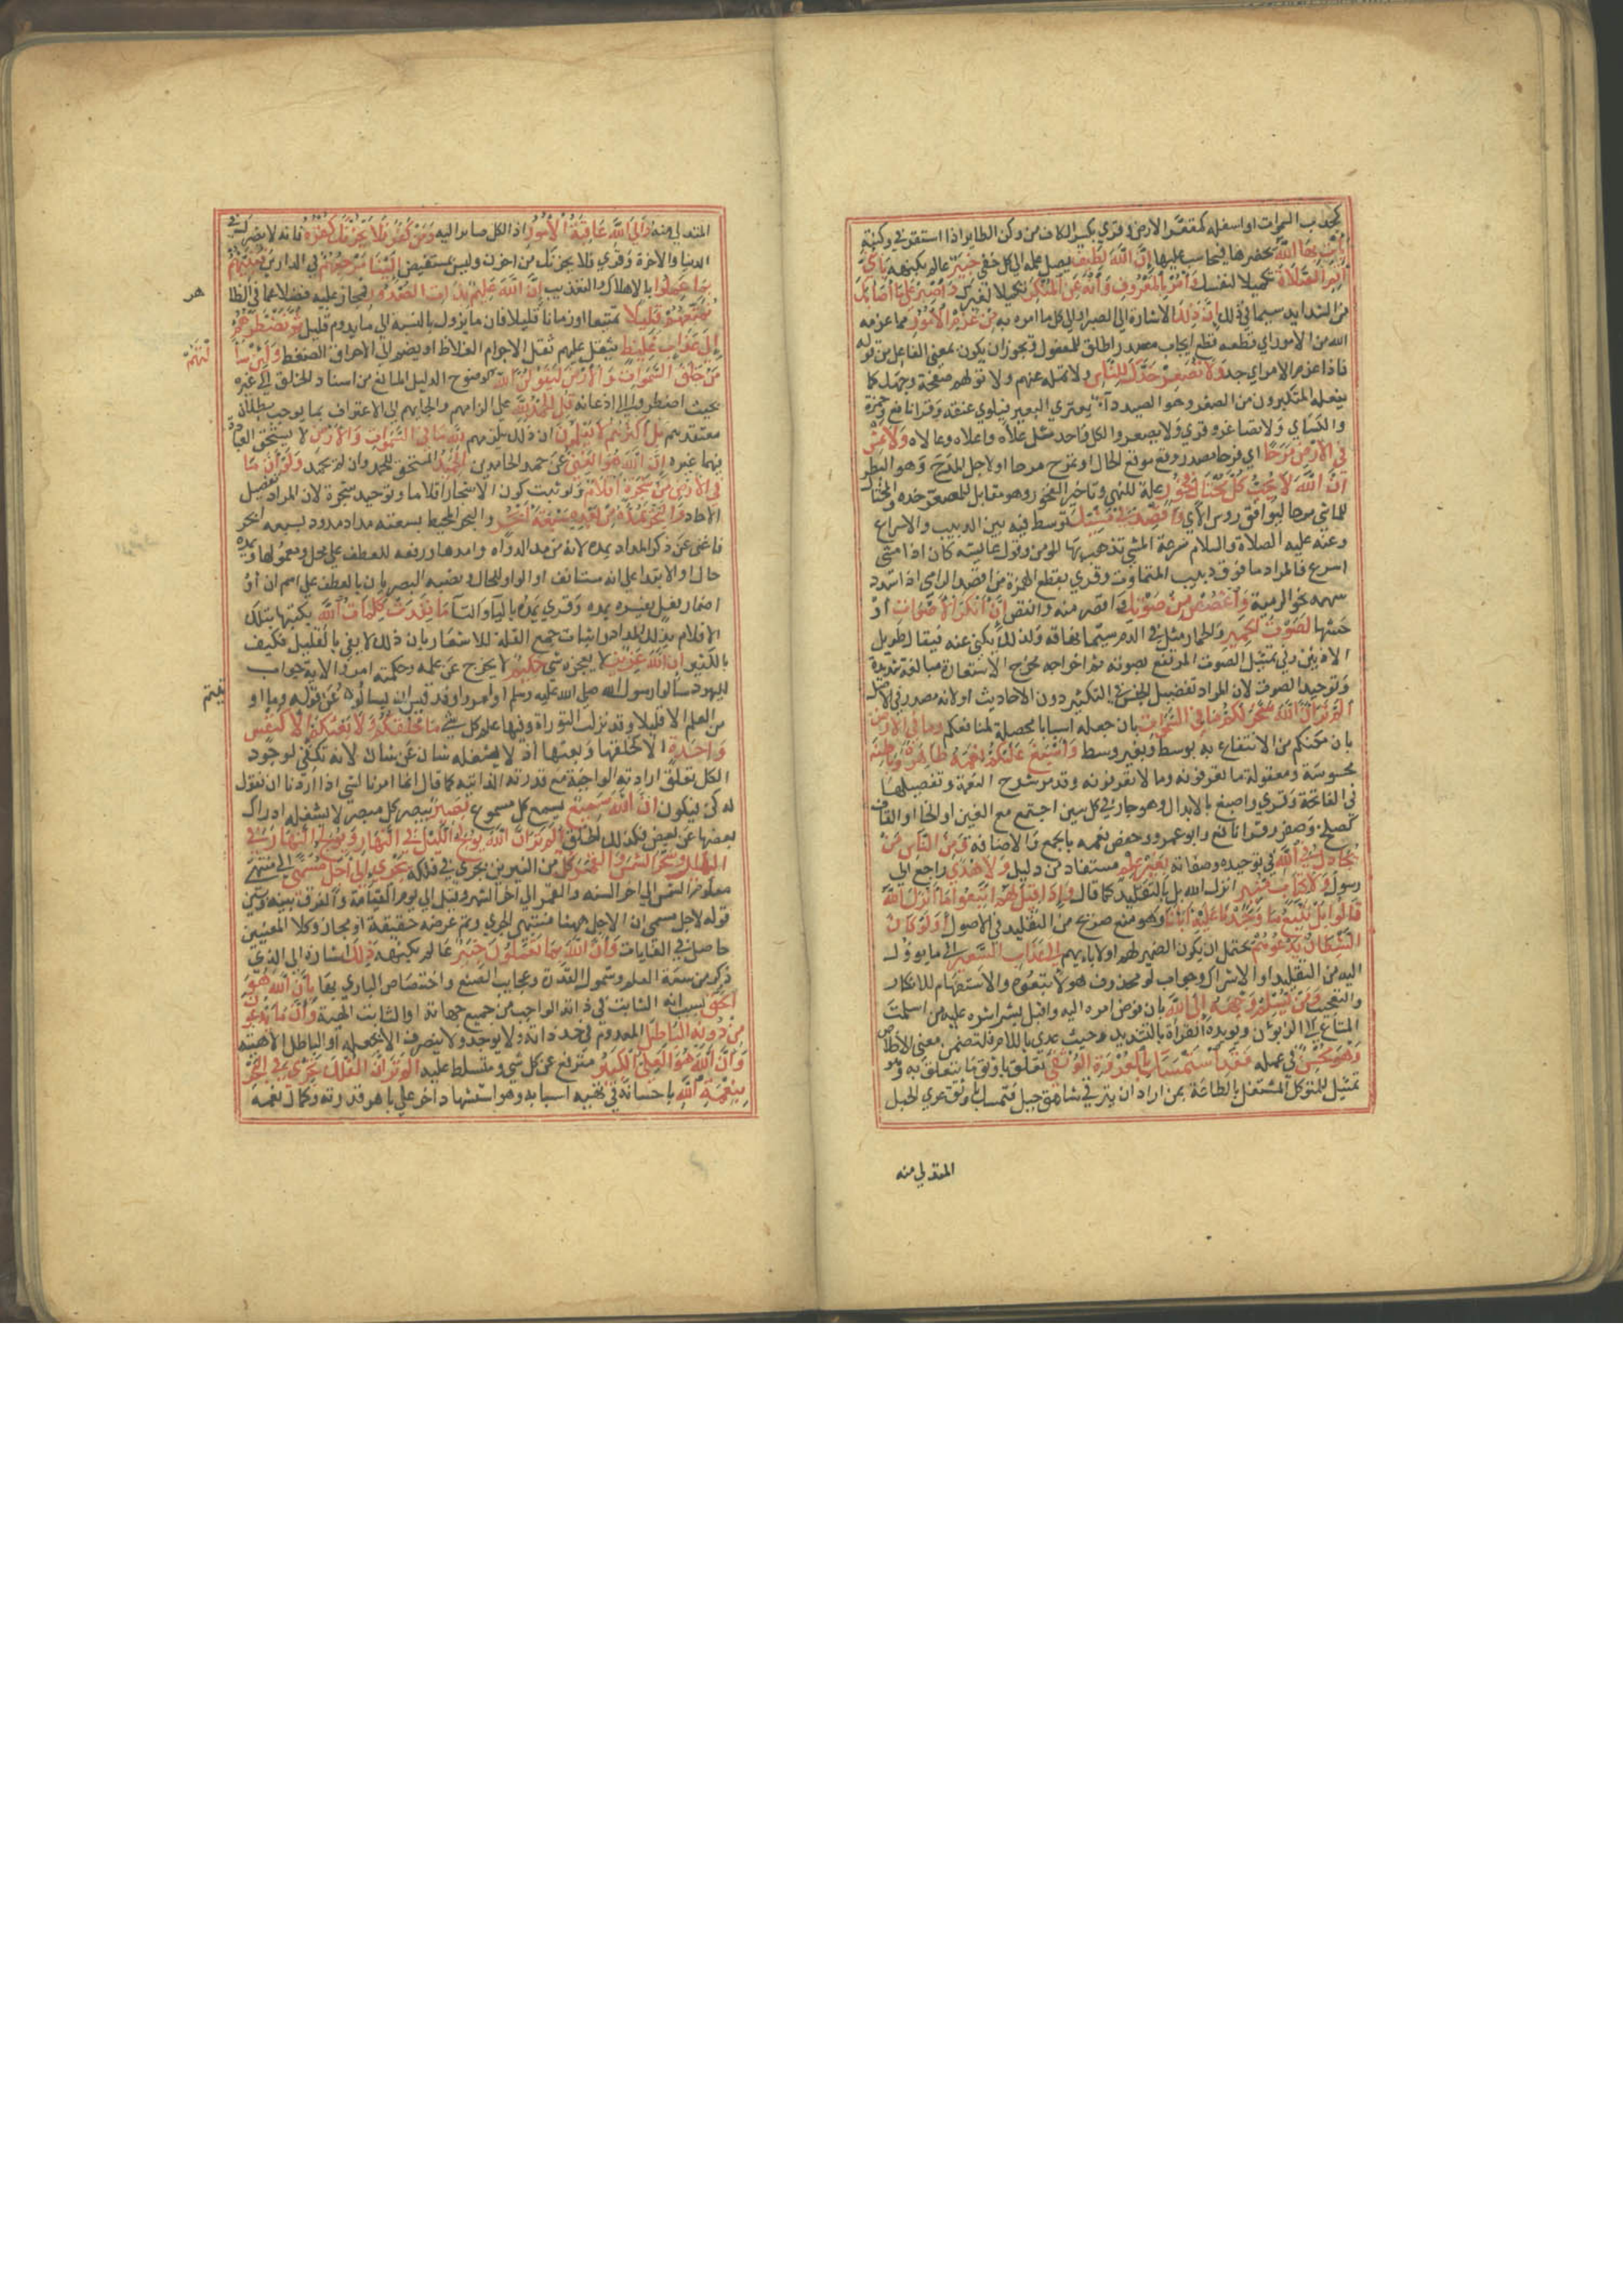 كمحدب السموات او اسفله كمقعر الارض وقري بكسر الكاف من وكن الطاير اذا استقر في وكنته
يأت بها الله يحضرها فيحاسب عليها ان الله لطيف يصل علمه الى كل خفي خبير عالم بكنهه يا بني
اقم الصلاة تكميلا لنفسك وامر بالمعروف وانه عن المنكر تكميلا لغيرك واصبر على ما اصابك
من الشدايد سيما في ذلك ان ذلك الاشارة الى الصبر او الى كل ما امره به من عزم الامور مما عزمه
الله من الامور اي قطعه قطع ايجاب مصدر اطلق للمفعول ويجوز ان يكون بمعنى الفاعل من قوله
فاذا عزم الامر اي جد ولا تصعر خدك للناس ولا تمله عنهم ولا تولهم صفحة وجهك كما
يفعله المتكبرون من الصعر وهو الصيد داء يعتري البعير فيلوي عنقه وقرا نافع وحمزة
والكساي ولا تصاعر وقري ولا تصعر والكل واحد مثل علاه واعلاه وعالاه ولا تمش
في الارض مرحا اي فرحا مصدر وقع موقع الحال او تمرح مرحا او لاجل المرح وهو البطر
ان الله لا يحب كل مختال فخور علة للنهي وتاخير الفخور وهو مقابل للمصعر خده والمختال
للماشي مرحا ليوافق روس الاي واقصد في مشيك توسط فيه بين الدبيب والاسراع
وعنه عليه الصلاة والسلام سرعة المشي تذهب بها المومن وقول عايشة كان اذا مشى
اسرع فالمراد ما فوق دبيب المتماوت وقري بقطع الهمزة من اقصد الرامي اذا سدد
سهمه نحو الرمية واغضض من صوتك واقصر منه وانقص ان انكر الاصوات او
حشها لصوت الحمير والحمار مثل في الذم سيما نهاقه ولذلك يكني عنه فيقال طويل
الاذنين وفي تمثيل الصوت المرتفع بصوته ثم اخراجه مخرج الاستعارة مبالغة شديدة
وتوحيد الصوت لان المراد تفضيل الجنس في التكثير دون الاحاديث او لانه مصدر في الاصل
الم تر ان الله سخر لكم ما في السموات بان جعله اسبابا محصلة لمنافعكم وما في الارض
بان مكنكم من الانتفاع به بوسط وبغير وسط واسبغ عليكم نعمه ظاهرة وباطنة
محسوسة ومعقولة ما تعرفونه وما لا تعرفونه وقد مر شرح النعمة وتفصيلها
في الفاتحة وقري واصبغ بالابدال وهو جار في كل سين اجتمع مع الغين او الخا او القاف
كصلخ وصقر وقرا نافع وابو عمرو وحفص نعمه بالجمع والاضافة ومن الناس من
يجادل في الله في توحيده وصفاته بغير علم مستفاد من دليل ولا هدى راجع الى
رسول ولا كتاب منير انزله الله بل بالتقليد كما قال واذا قيل لهم اتبعوا ما انزل الله
قالوا بل نتبع ما وجدنا عليه اباءنا وهو منع صريح من التقليد في الاصول اولو كان
الشيطان يدعوهم يحتمل ان يكون الضمير لهم او لابايهم الى عذاب السعير الى ما يوول
اليه من التقليد او الاشراك وجواب لو محذوف هو لاتبعوه والاستفهام للانكار
والتعجب ومن يسلم وجهه الى الله بان فوض امره اليه واقبل بشراشره عليه من اسلمت
المتاع الى الزبون ويويده القراة بالتشديد وحيث عدي باللام فلتضمن معنى الاخلاص
وهو محسن في عمله فقد استمسك بالعروة الوثقى تعلق باوثق ما يتعلق به وهو
تمثيل للمتوكل المشتغل بالطاعة بمن اراد ان يترقى شاهق جبل فتمسك باوثق عري الحبل
المتدلي منه
المتدلي منه والى الله عاقبة الامور اذ الكل صاير اليه ومن كفر فلا يحزنك كفره فانه لا يضرك في
الدنيا والاخرة وقري فلا يحزنك من احزن وليس بمستفيض الينا مرجعهم في الدارين فننبئهم
بما عملوا بالاهلاك والتعذيب ان الله عليم بذات الصدور فمجاز عليه فضلا عما في الظا
هر
نمتعهم قليلا تمتيعا او زمانا قليلا فان ما يزول بالنسبة الى ما يدوم قليل ثم نضطرهم
الى عذاب غليظ يثقل عليهم ثقل الاجرام الغلاظ او يضم الى الاحراق الضغط ولئن سا
لتهم
من خلق السموات والارض ليقولن الله لوضوح الدليل المانع من اسناد الخلق الى غيره
بحيث اضطروا الى اذعانه قل الحمد لله على الزامهم والجايهم الى الاعتراف بما يوجب بطلان
معتقدهم بل اكثرهم لا يعلمون ان ذلك يلزمهم لله ما في السموات والارض لا يستحق العبادة
فيهما غيره ان الله هو الغني عن حمد الحامدين الحميد المستحق للحمد وان لم يحمد ولو ان ما
في الارض من شجرة اقلام ولو ثبت كون الاشجار اقلاما وتوحيد شجرة لان المراد تفصيل
الاحاد والبحر يمده من بعده سبعة ابحر والبحر المحيط بسعته مداد ممدود بسبعة ابحر
فاغنى عن ذكر المداد يمده لانه من مد الدواة وامدها ورفعه للعطف على محل ومعمولها ويمده
حال او الابتدا على انه مستانف او الواو للحال ونصبه البصريان بالعطف على اسم ان او
اضمار فعل يفسره يمده وقري يمده باليا والتا ما نفدت كلمات الله بكتبها بتلك
الاقلام بذلك المداد وايثار جمع القلة للاشعار بان ذلك لا يفي بالقليل فكيف
بالكثير ان الله عزيز لا يعجزه شي حكيم لا يخرج عن علمه وحكمته امر والاية جواب
لليهود سالوا رسول الله صلى الله عليه وسلم او امروا وفد قريش ان يسالوه عن قوله وما او
تيتم
من العلم الا قليلا وقد نزلت التوراة وفيها علم كل شي ما خلقكم ولا بعثكم الا كنفس
واحدة الا كخلقها وبعثها اذ لا يشغله شان عن شان لانه يكفي لوجود
الكل تعلق ارادته الواجبة مع قدرته الذاتية كما قال انما امرنا لشي اذا اردنا ان نقول
له كن فيكون ان الله سميع يسمع كل مسموع بصير يبصر كل مبصر لا يشغله ادراك
بعضها عن بعض فكذلك الخلق الم تر ان الله يولج الليل في النهار ويولج النهار في
الليل وسخر الشمس والقمر كل من النيرين يجري في فلكه يجري الى اجل مسمى الى منتهى
معلوم الشمس الى اخر السنة والقمر الى اخر الشهر وقيل الى يوم القيامة والفرق بينه وبين
قوله لاجل مسمى ان الاجل ههنا منتهى الجري وثم غرضه حقيقة او مجاز وكلا المعنيين
حاصل في الغايات وان الله بما تعملون خبير عالم بكنهه ذلك اشارة الى الذي
ذكر من سعة العلم وشمول القدرة وعجايب الصنع واختصاص الباري بها بان الله هو
الحق بسبب انه الثابت في ذاته الواجب من جميع جهاته او الثابت الهيته وان ما يدعون
من دونه الباطل المعدوم في حد ذاته ولا يوجد ولا يتصف الا بجعله او الباطل الاهيته
وان الله هو العلي الكبير مترفع عن كل شي ومتسلط عليه الم تر ان الفلك تجري في البحر
بنعمة الله باحسانه في تهيية اسبابه وهو استشهاد اخر على باهر قدرته وكمال نعمه